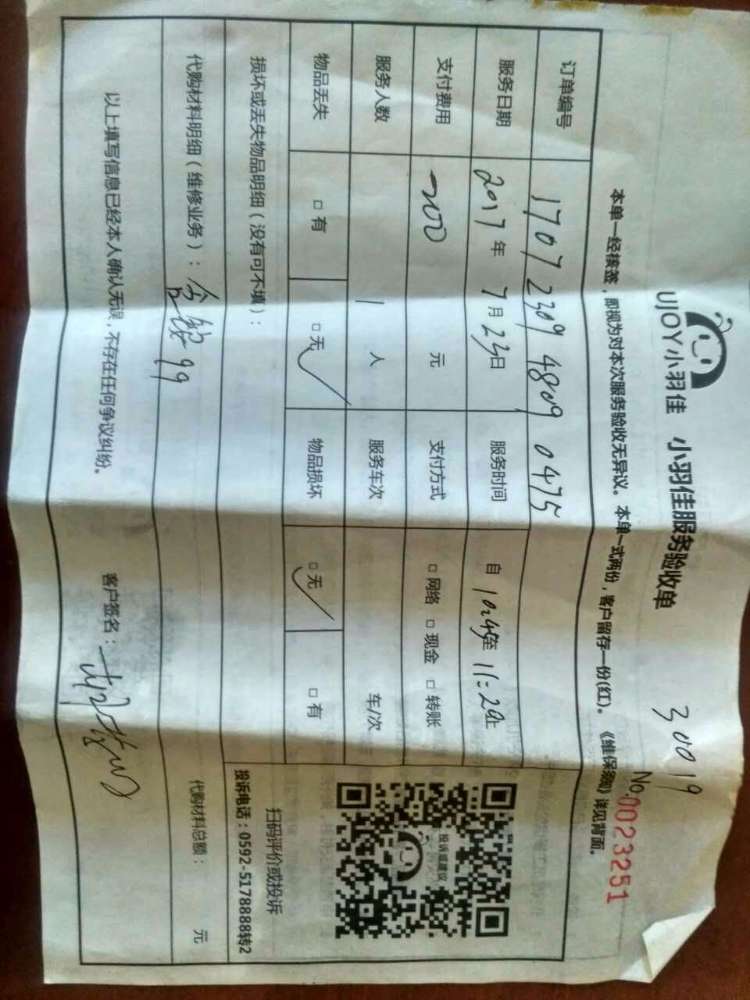 UJOY小羽佳 小羽佳服务验收单
30019
No.0023251
本单一经核签，即视为对本次服务验收无异议。本单一式两份，客户留存一份(红)。《维保须知》详见背面。
订单编号 1707 2309 4809 0475
服务日期 2017年 7月 23日 服务时间 自 10:45至 11:29止
支付费用 200 元 支付方式 □网络 □现金 □转账
服务人数 1 人 服务车次 车/次
物品丢失 □有 □无✓ 物品损坏 □无✓ □有
损坏或丢失物品明细（没有可不填）：
代购材料明细（维修业务）： 99 代购材料总额： 元
以上填写信息已经本人确认无误，不存在任何争议纠纷。 客户签名：
投诉或建议
扫码评价或投诉
投诉电话：0592-5178888转2